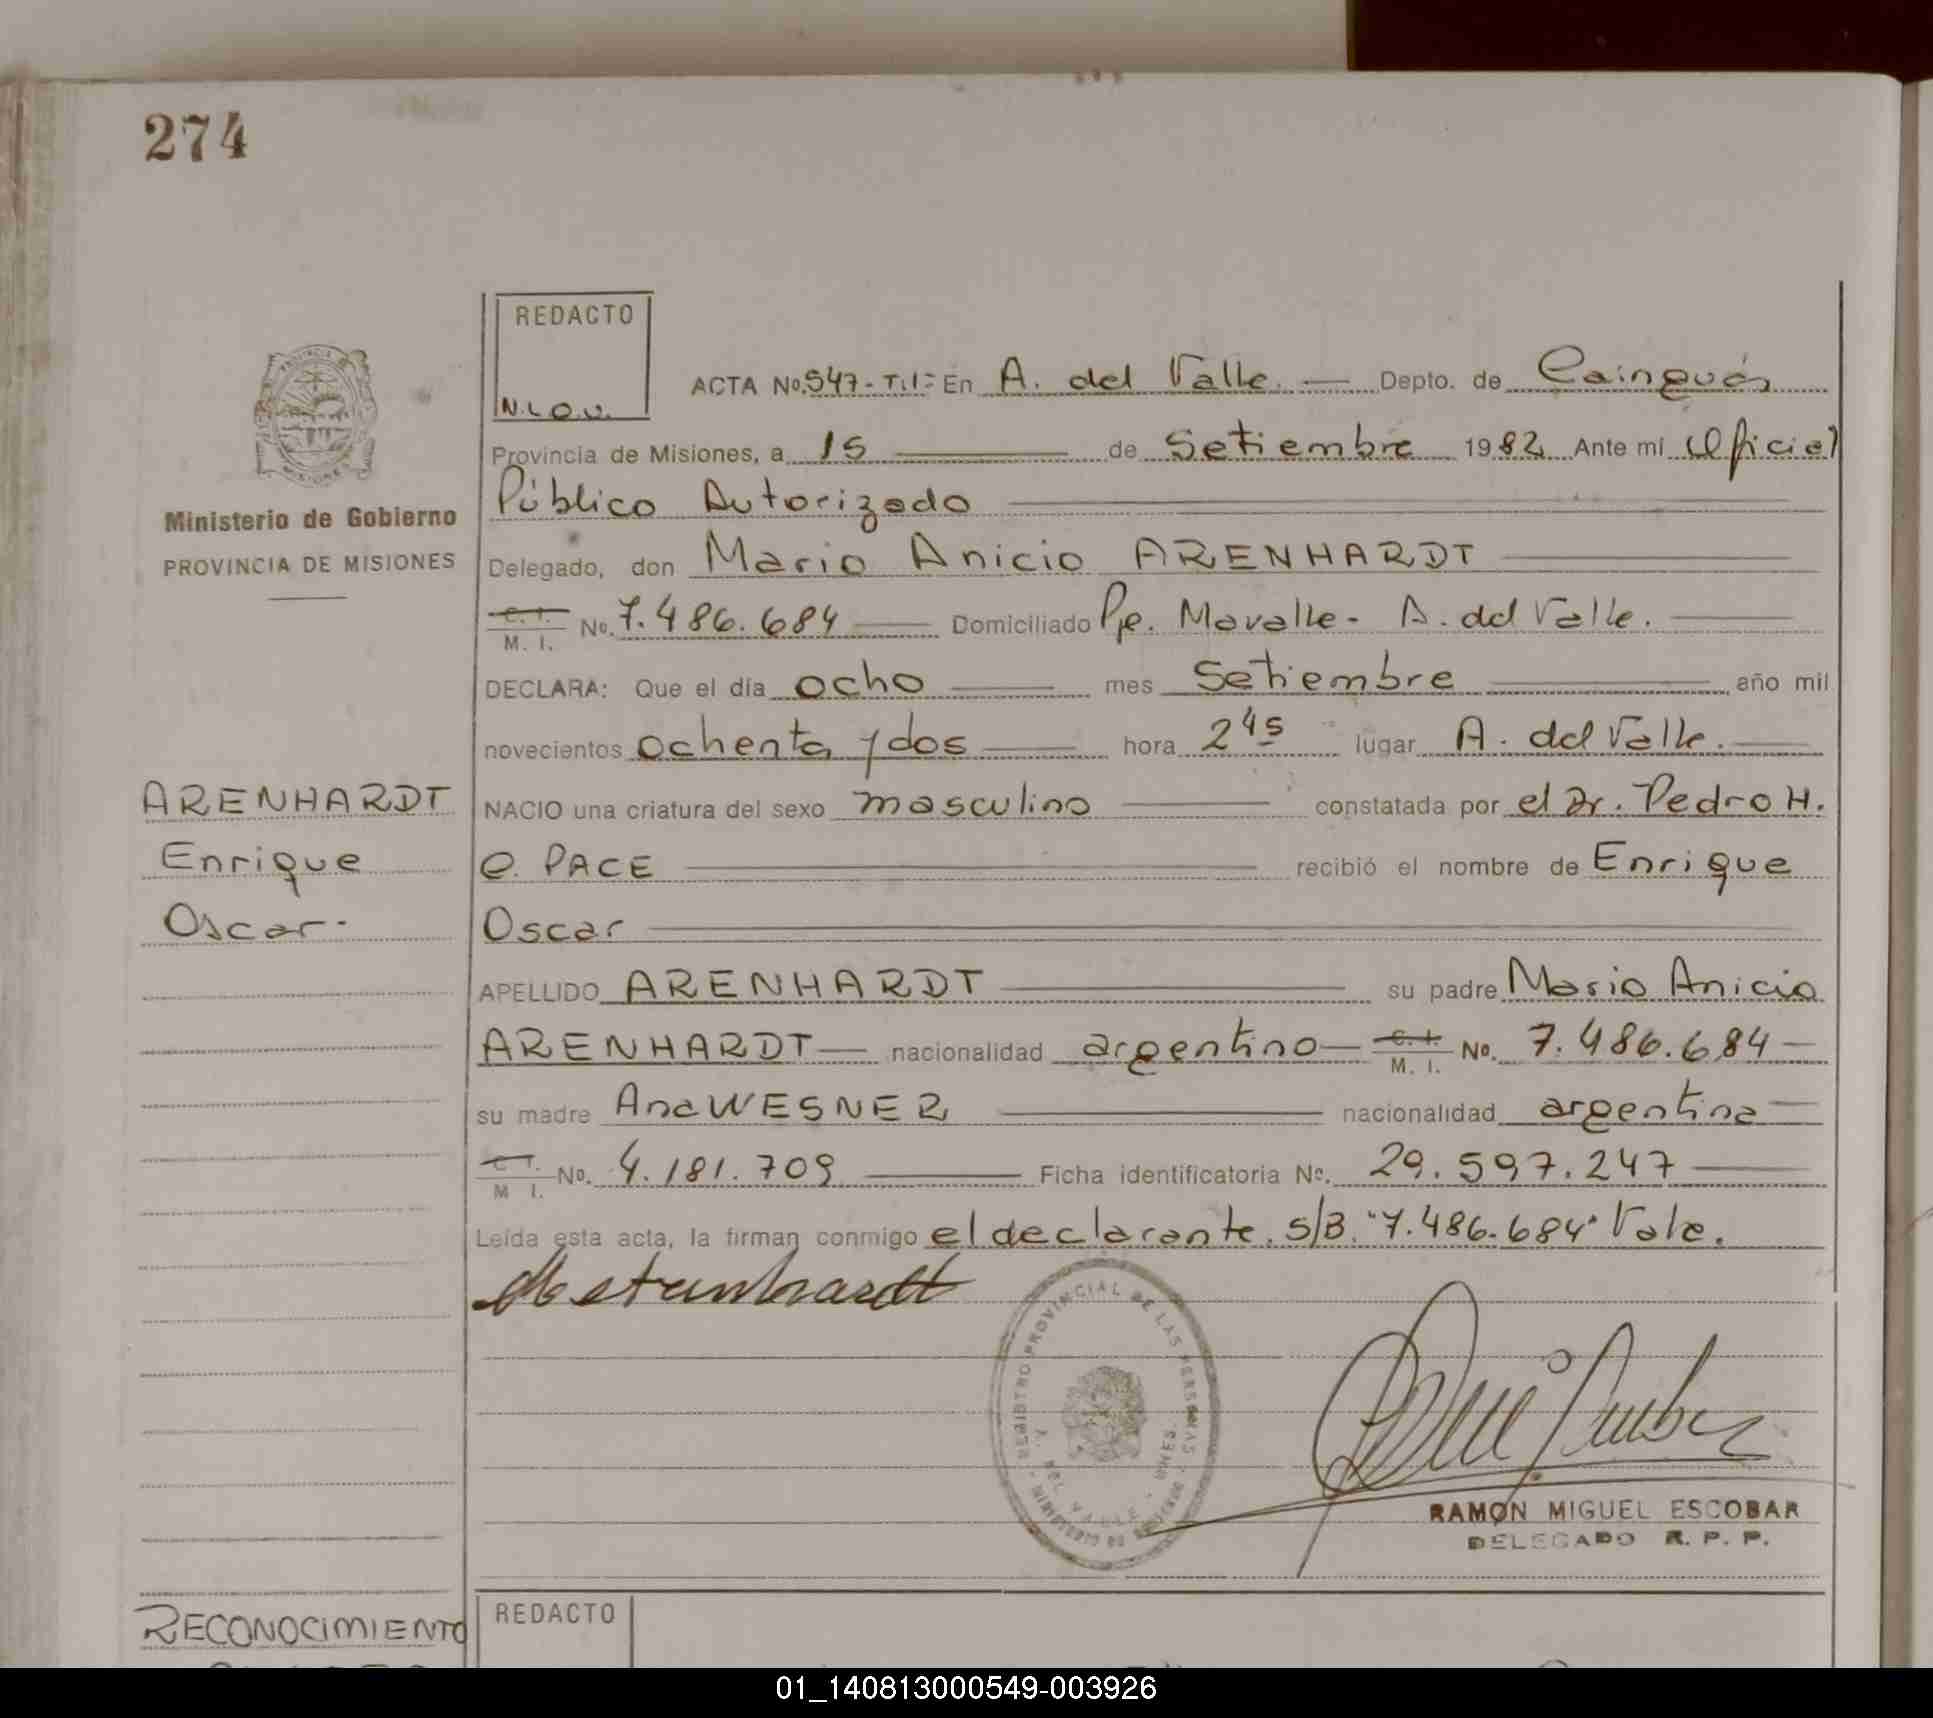 274
REDACTO
N.L.O.U.
ACTA No. 547 - T.I - En A. del Valle. Depto. de Cainguás
Provincia de Misiones, a 15 de Setiembre 1982 Ante mi Oficial
Público Autorizado
Delegado, don Mario Anicio ARENHARDT
C. I. M. I. No. 7.486.684 Domiciliado Pje. Mavalle - A. del Valle.
DECLARA: Que el día ocho mes Setiembre año mil
novecientos ochenta y dos hora 2 45 lugar A. del Valle.
NACIO una criatura del sexo masculino constatada por el Dr. Pedro H.
C. PACE recibió el nombre de Enrique
Oscar
APELLIDO ARENHARDT su padre Mario Anicio
ARENHARDT nacionalidad argentino C. I. M. I. No. 7.486.684
su madre Ana WESNER nacionalidad argentina
C I. M I. No. 4.181.709 Ficha identificatoria No. 29.597.247
Leída esta acta, la firman conmigo el declarante. S/B. "7.486.684" Vale.
PROVINCIA DE MISIONES
Ministerio de Gobierno
PROVINCIA DE MISIONES
ARENHARDT
Enrique
Oscar.
REGISTRO PROVINCIAL DE LAS PERSONAS
A. DEL VALLE - MNES.
RAMON MIGUEL ESCOBAR
DELEGADO R. P. P.
RECONOCIMIENTO
REDACTO
01_140813000549-003926